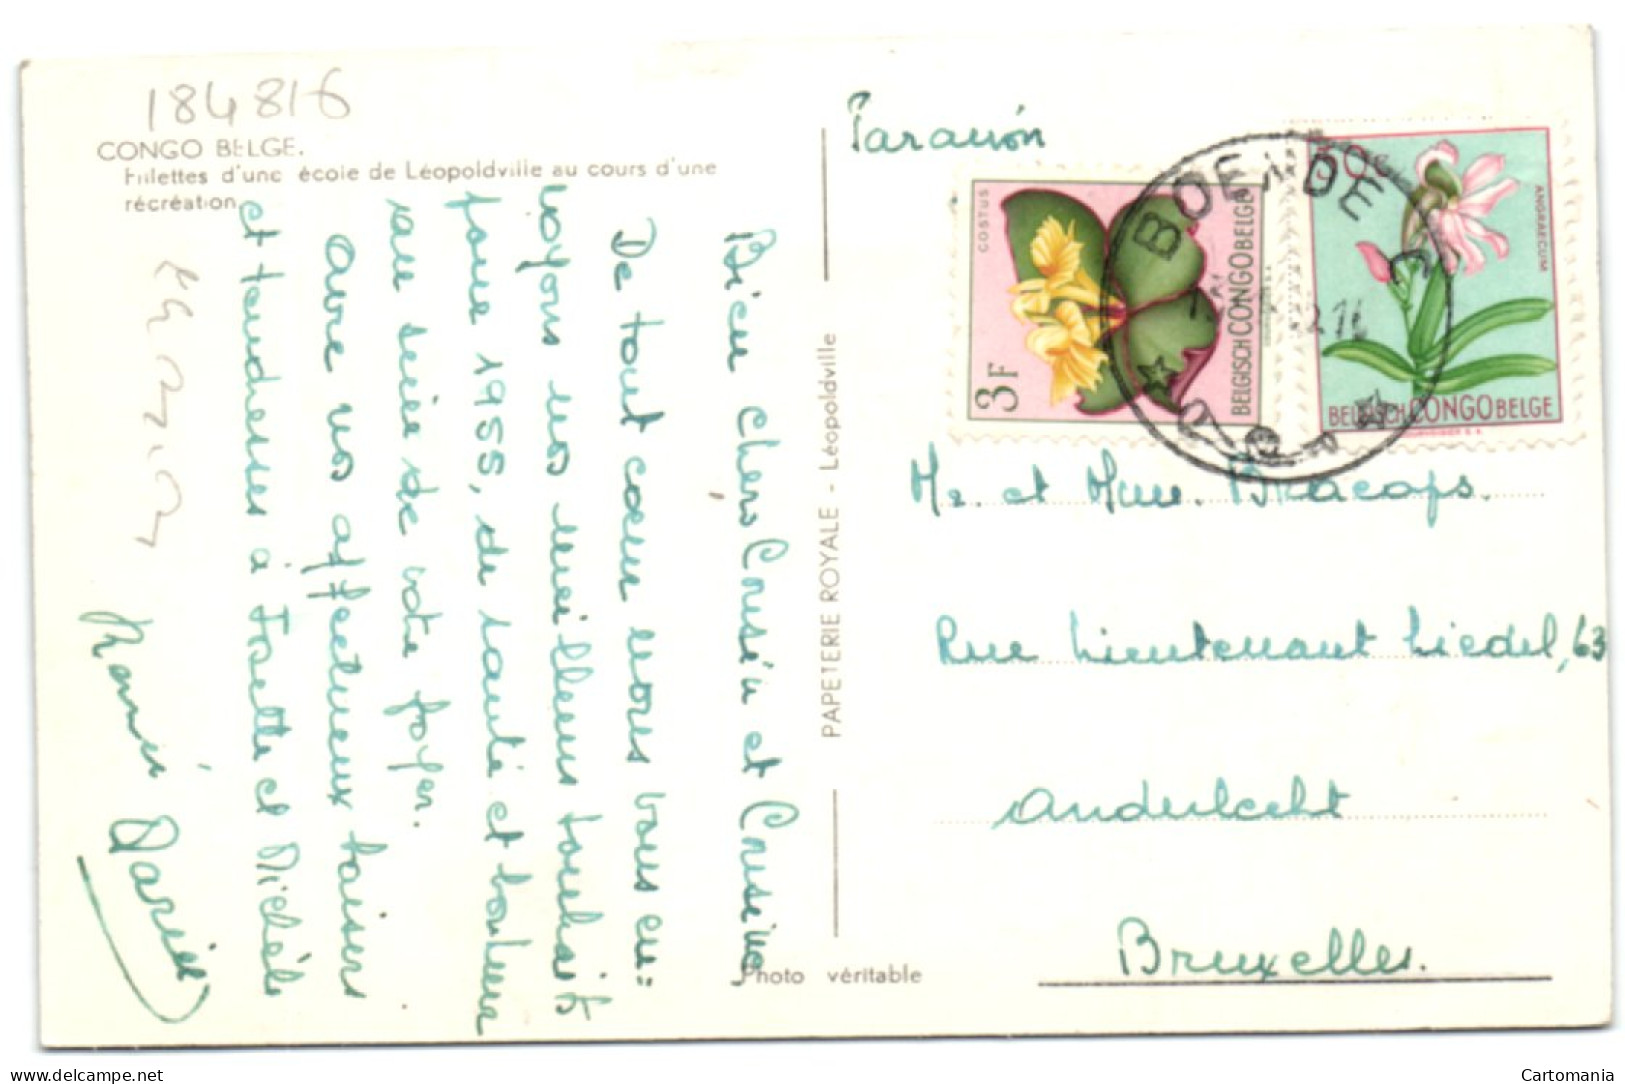 184816
CONGO BELGE.
Fillettes d'une école de Léopoldville au cours d'une
récréation.
Bien chers Cousin et Cousine
De tout cœur nous vous en-
voyons nos meilleurs souhaits
pour 1955, de santé et bonheur
au sein de votre foyer.
Avec nos affectueux baisers
et tendresses à Josette et Michèle
PAPETERIE ROYALE - Léopoldville
Photo véritable
Par avion
COSTUS
3F
BELGISCH CONGO BELGE
50c
ANGRAECUM
BELGISCH CONGO BELGE
BOENDE
Mr. et Mme. Bracops.
Rue Lieutenant Liedel, 63
Anderlecht
Bruxelles.
www.delcampe.net
Cartomania